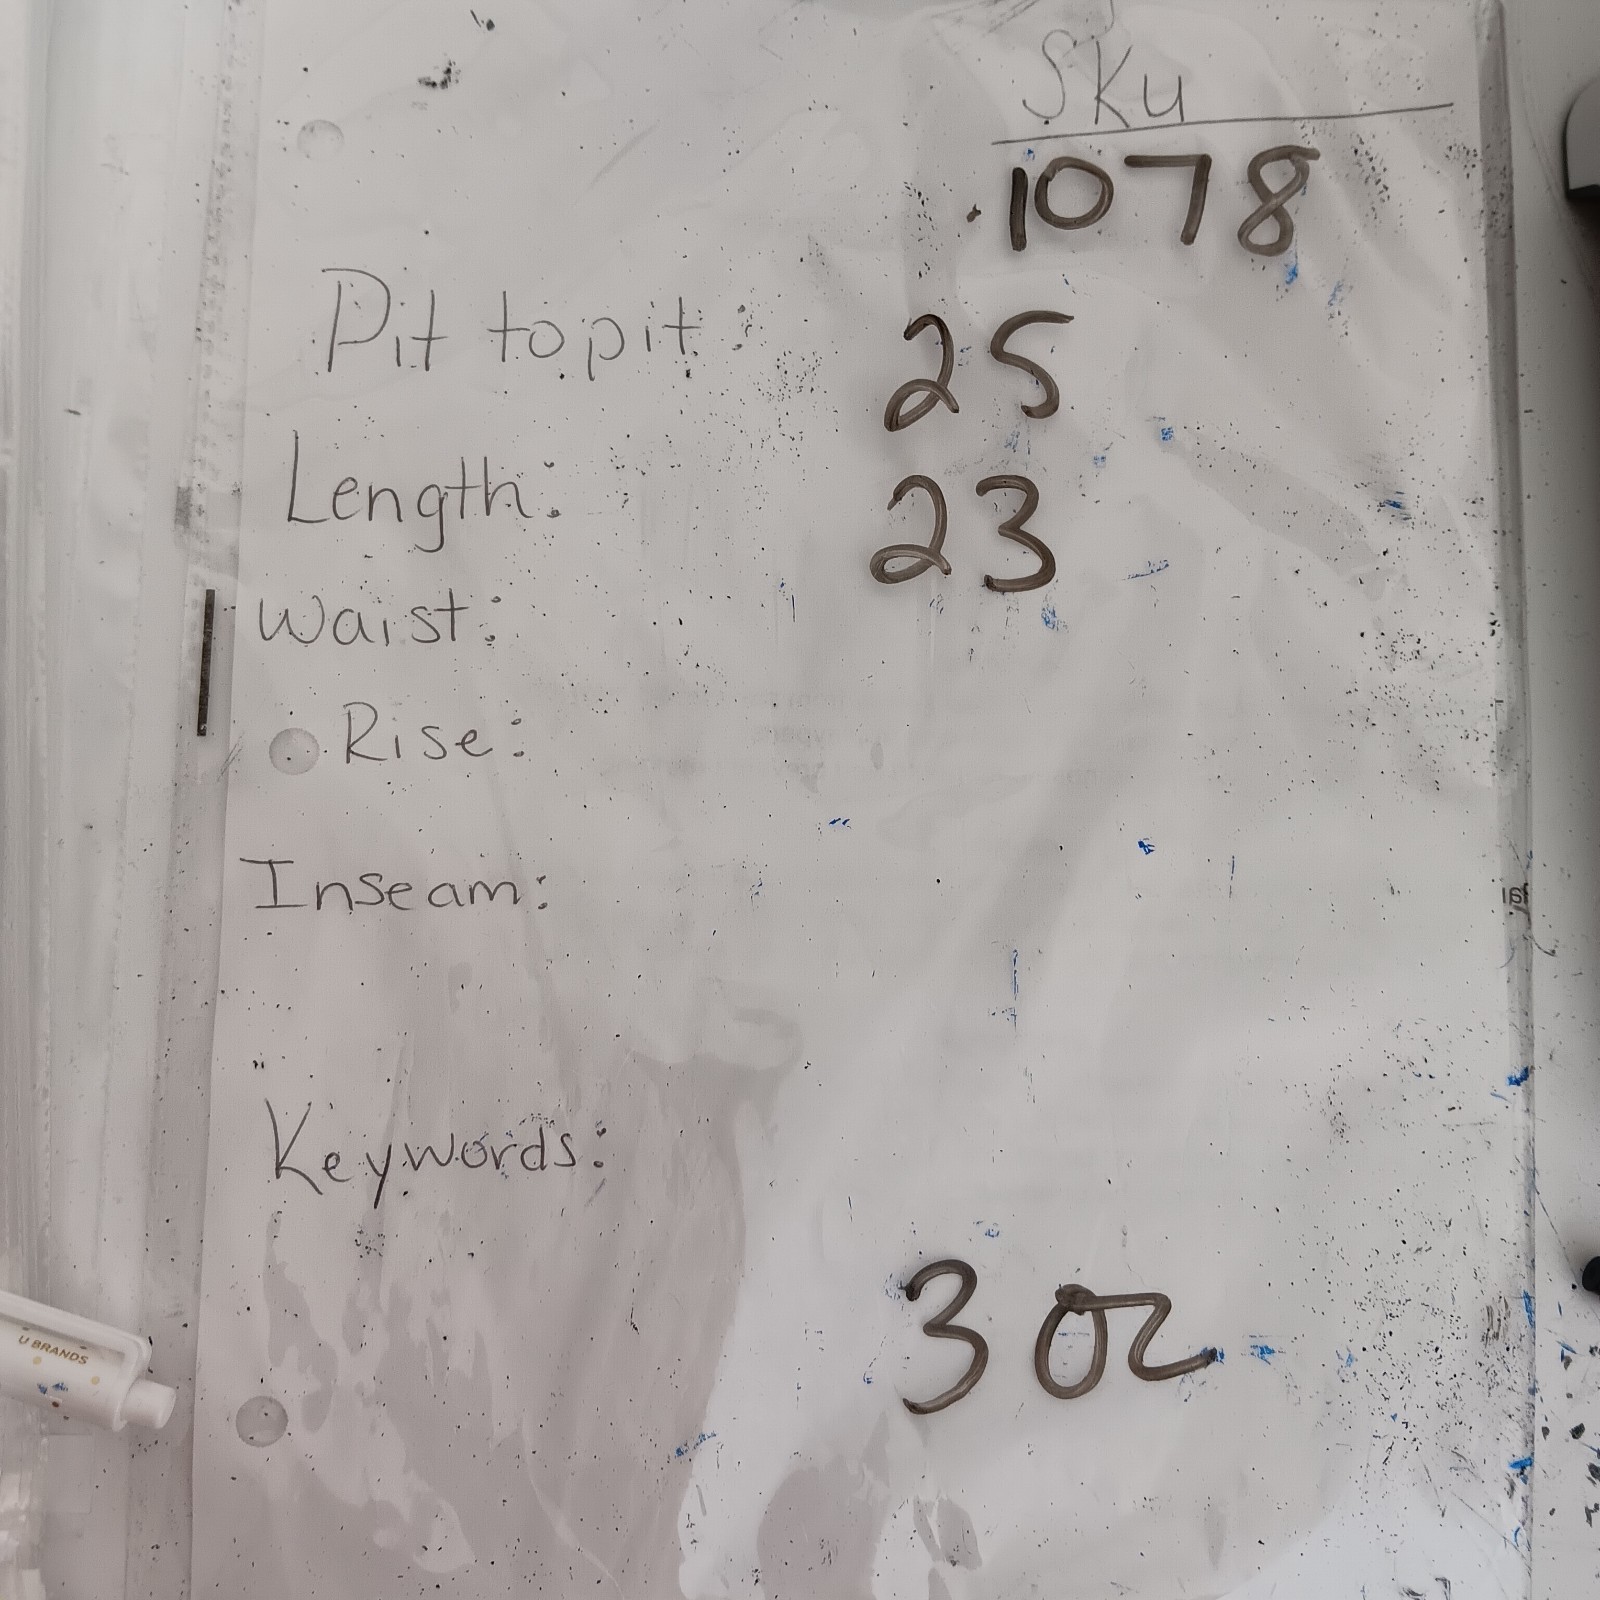 Sku
1078
Pit to pit: 25
Length: 23
Waist:
Rise:
Inseam:
Keywords:
3 oz
U BRANDS